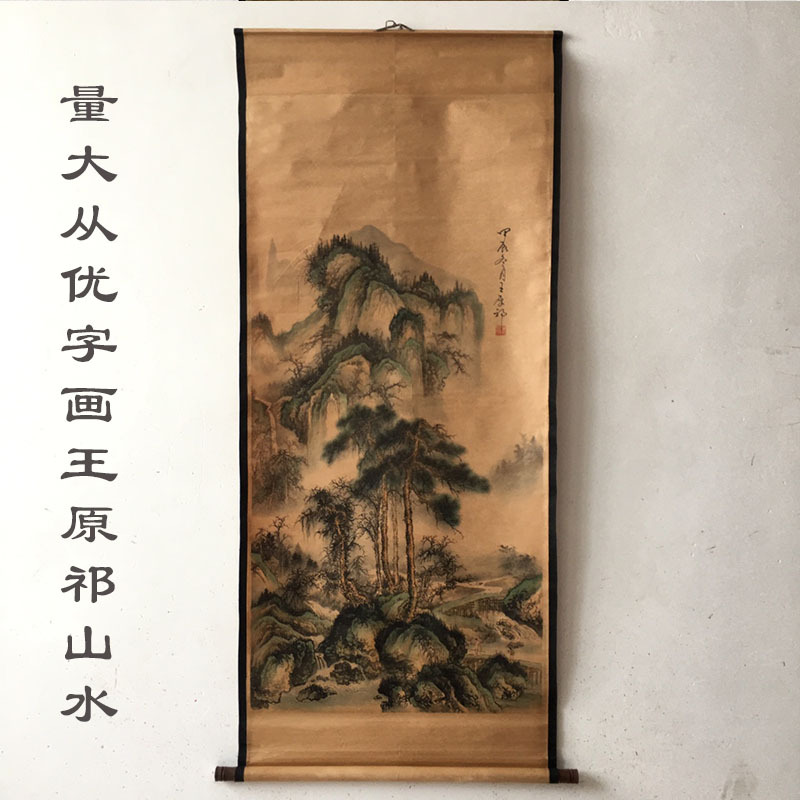 量大从优字画王原祁山水
甲辰冬月王原祁